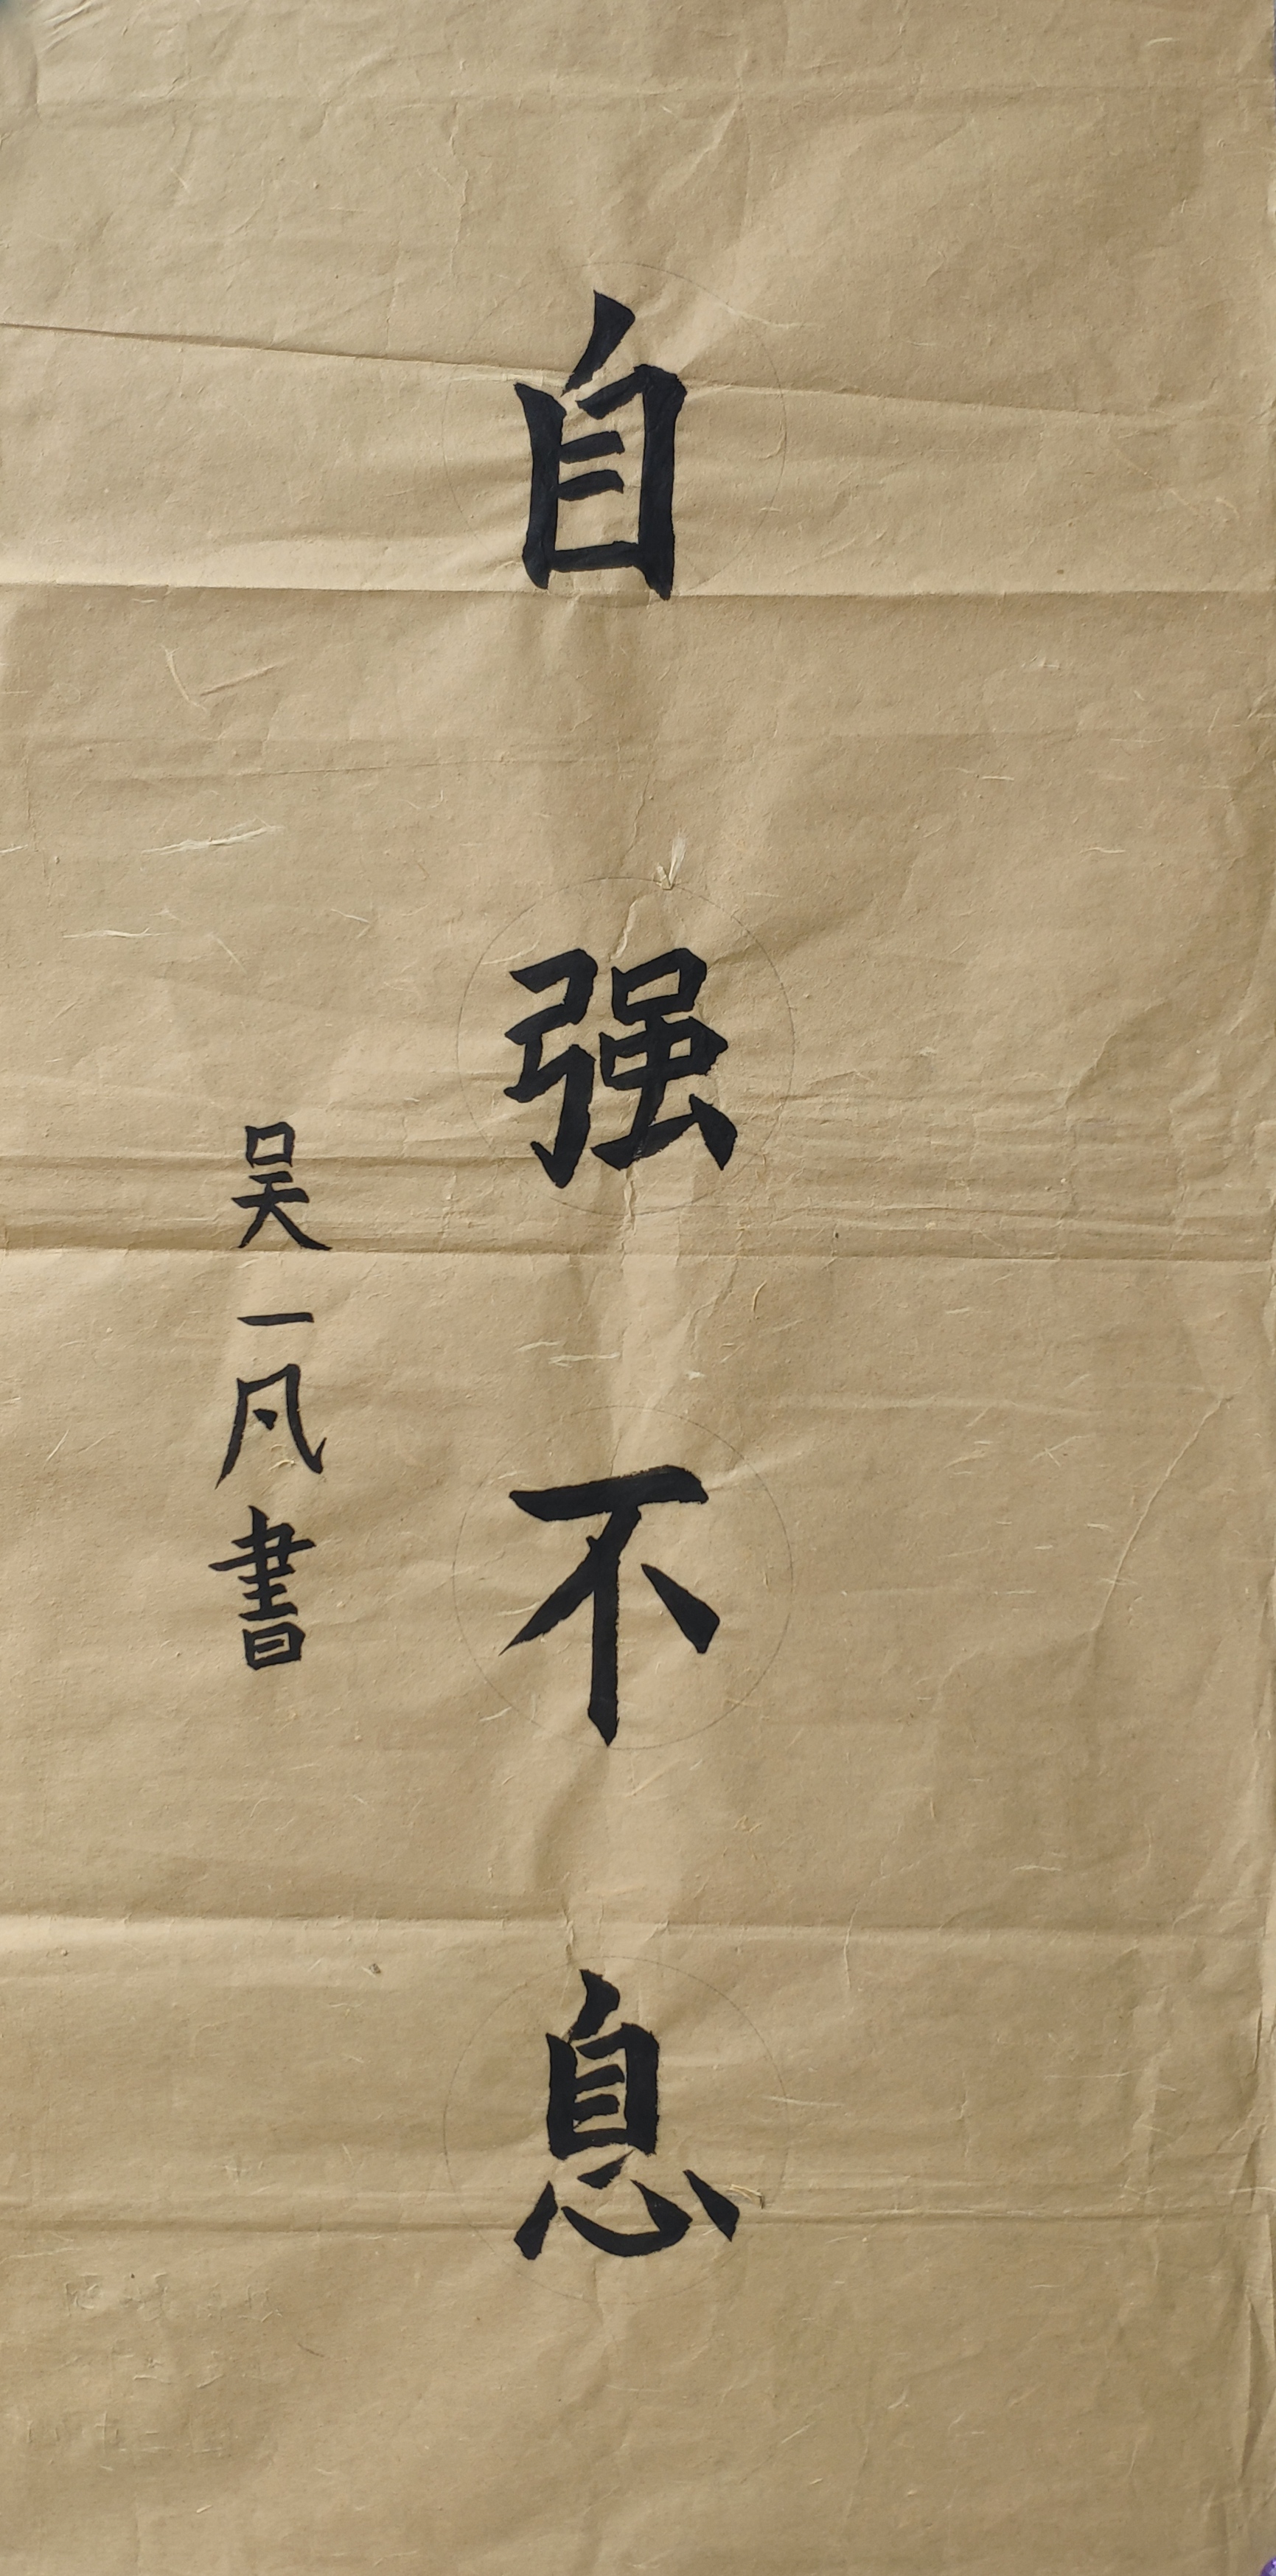 自强不息
吴一凡書